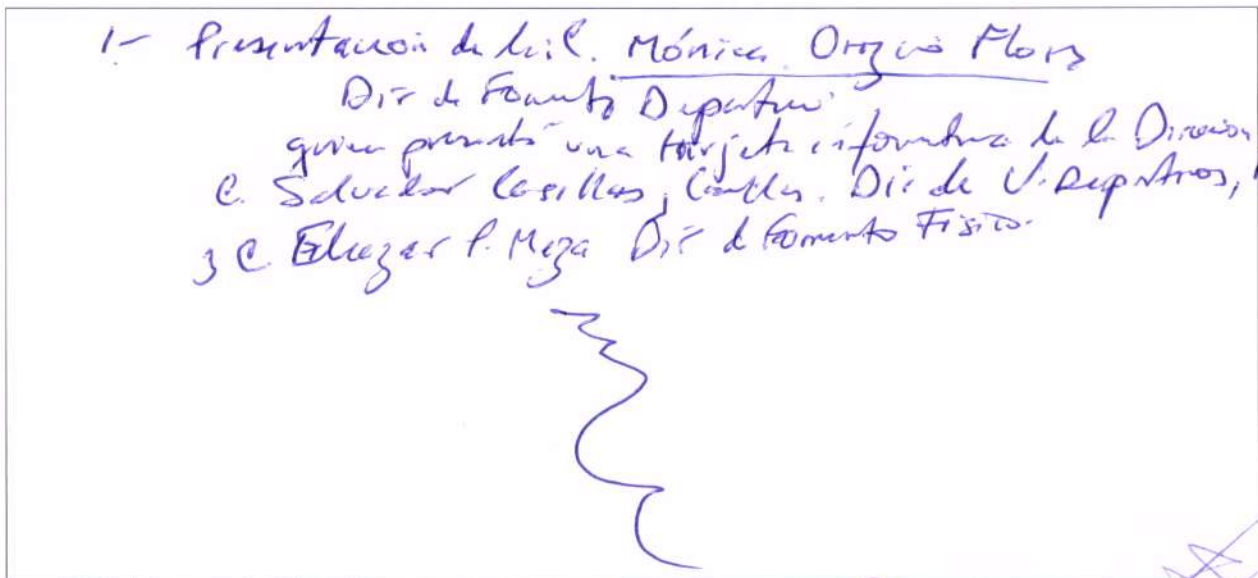 1- Presentación de Lic. Mónica Orozco Flores
Dir de Fomento Deportivo
quien presentó una tarjeta informativa de la Dirección
C. Salvador Casillas, Dir de U. Deportivas,
y C. Eliezer P. Meza Dir d Fomento Físico.